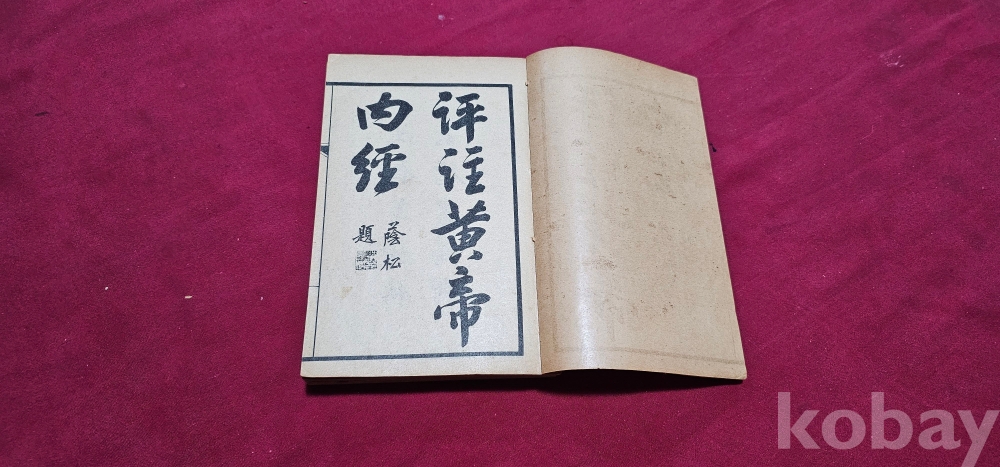 評註黃帝
內經
蔭松
題
kobay